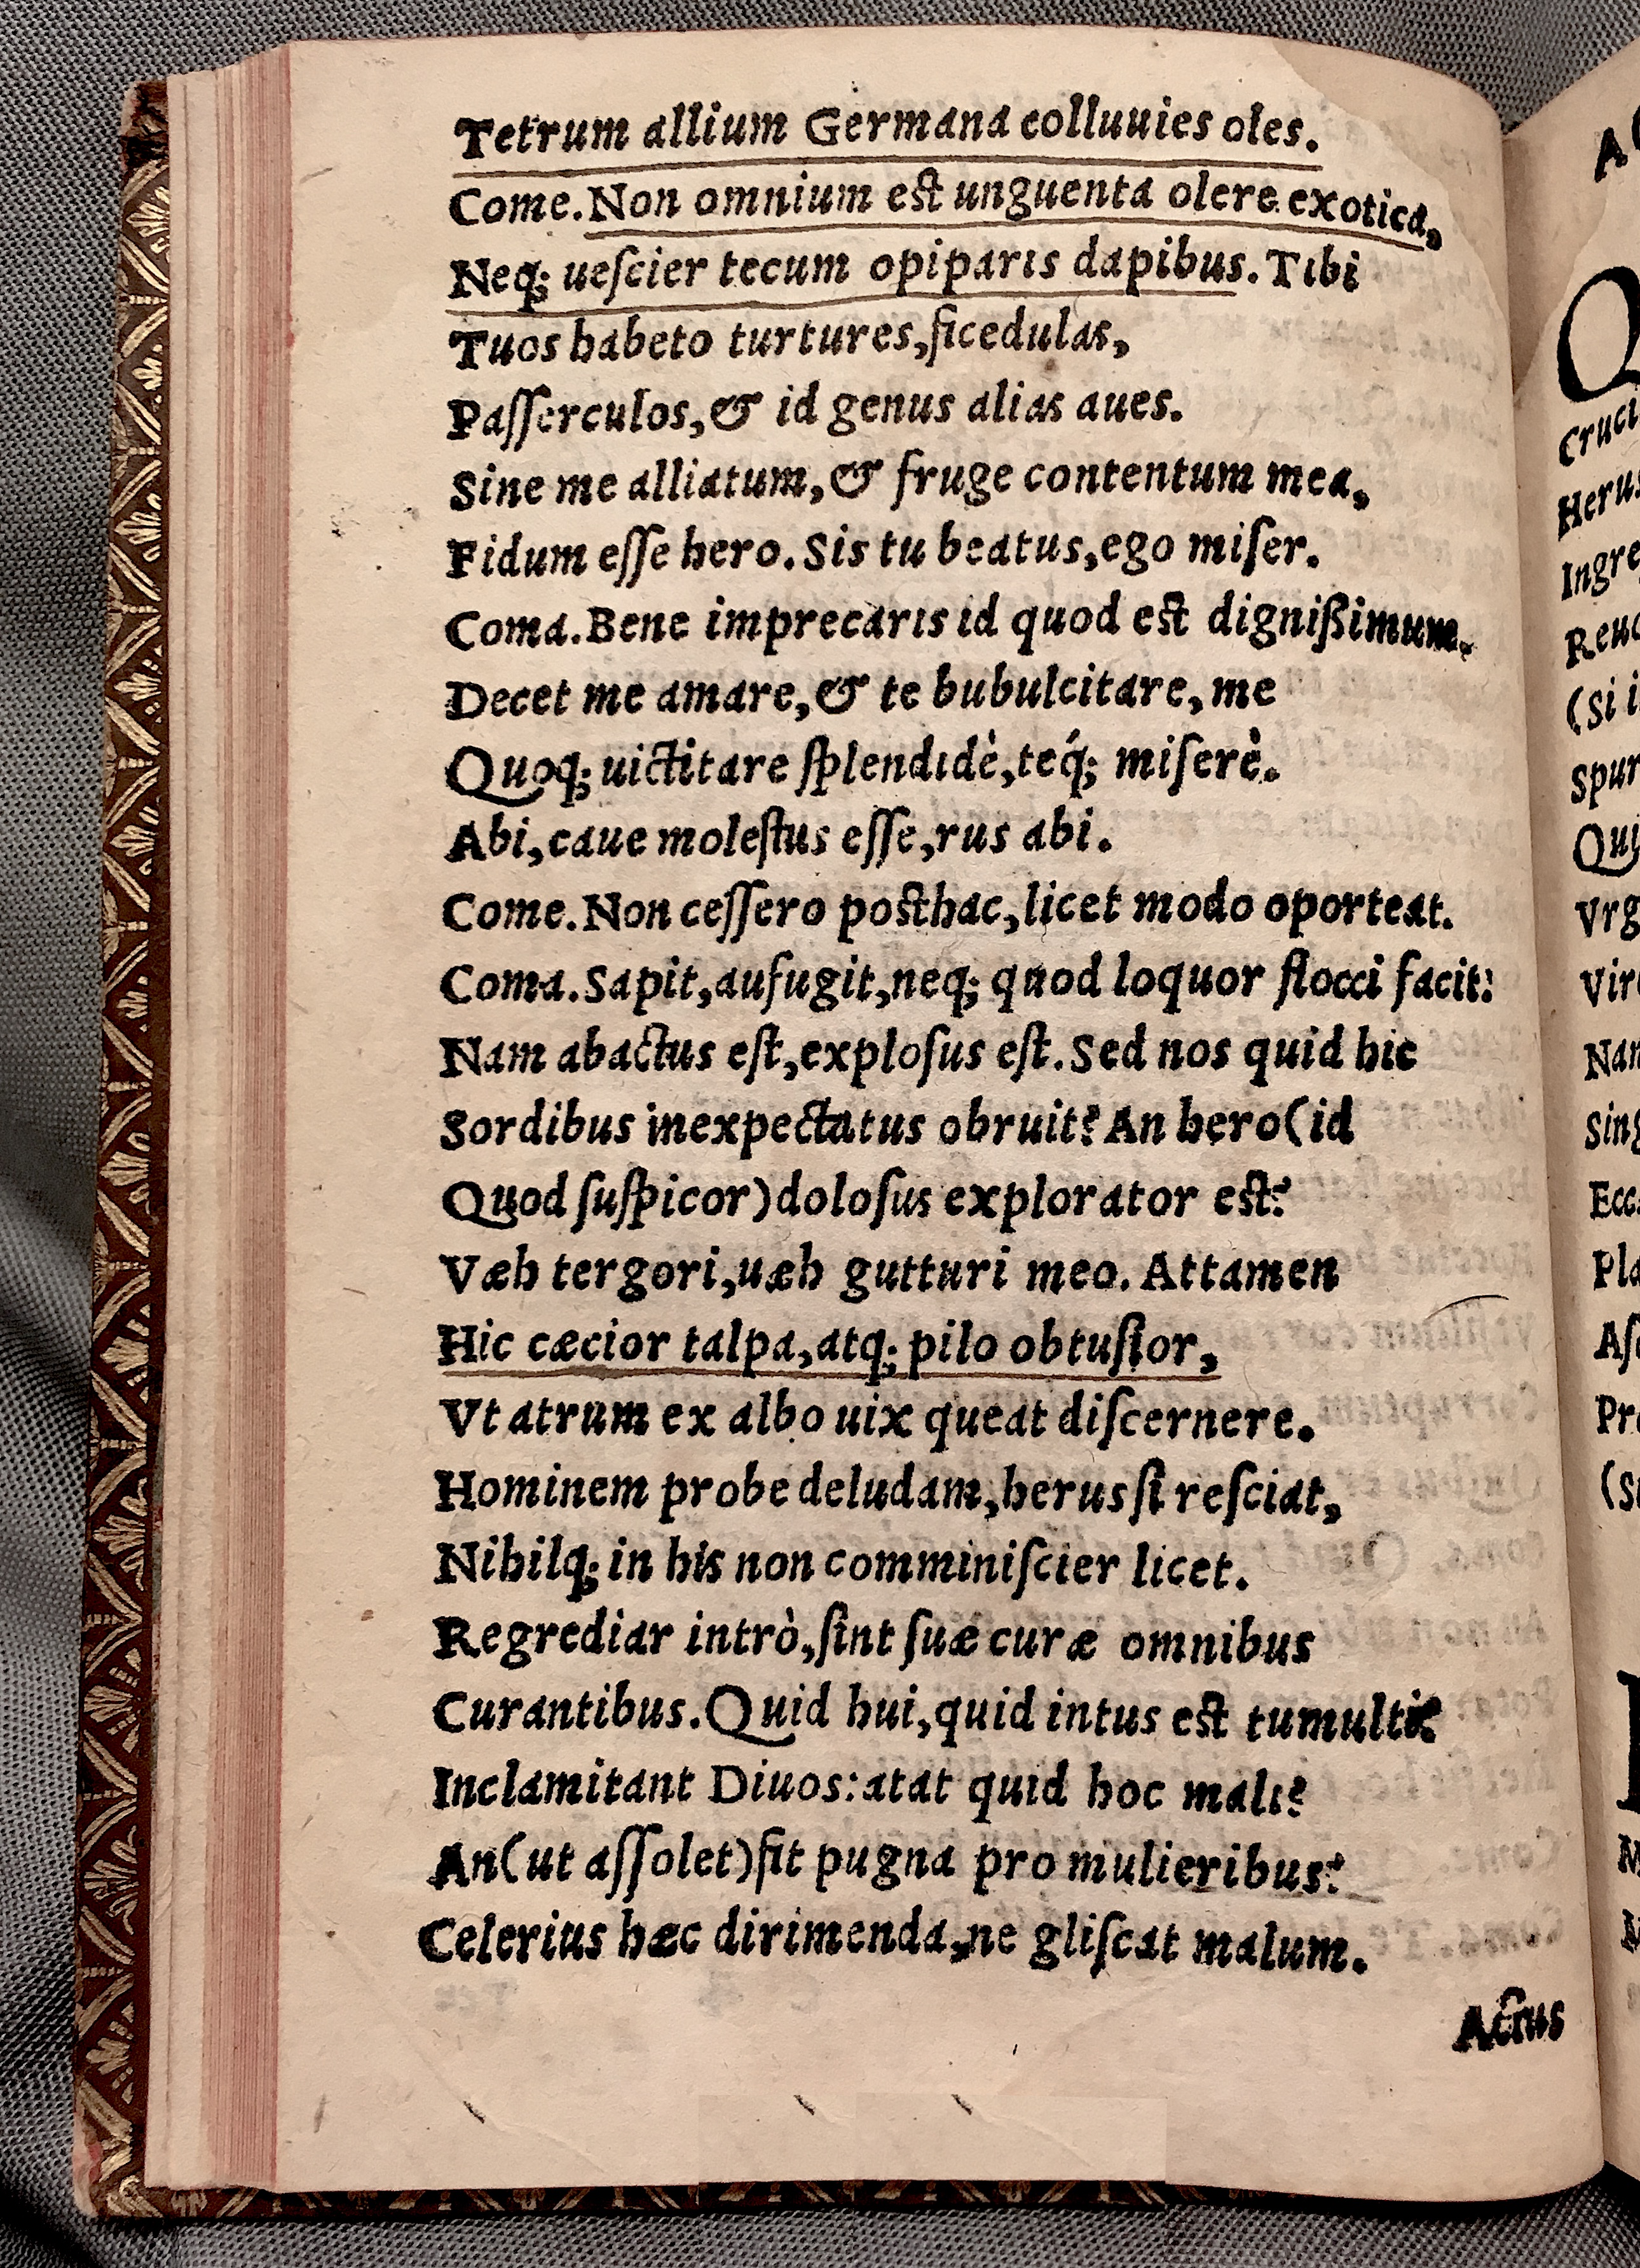 Tetrum allium Germana colluuies oles.
Come. Non omnium est unguenta olere exotica,
Neq; ueſcier tecum opiparis dapibus. Tibi
Tuos habeto turtures, ficedulas,
Paſſerculos, & id genus alias aues.
Sine me alliatum, & fruge contentum mea,
Fidum eſſe hero. Sis tu beatus, ego miſer.
Coma. Bene imprecaris id quod est dignißimum.
Decet me amare, & te bubulcitare, me
Quoq; uictitare ſplendidè, teq́; miſerè.
Abi, caue moleſtus eſſe, rus abi.
Come. Non ceſſero posthac, licet modo oporteat.
Coma. Sapit, aufugit, neq; quod loquor flocci facit:
Nam abactus eſt, exploſus eſt. Sed nos quid hic
Sordibus inexpectatus obruit? An hero (id
Quod ſuſpicor) doloſus explorator est?
Væh tergori, uæh gutturi meo. Attamen
Hic cæcior talpa, atq; pilo obtuſior,
Vt atrum ex albo uix queat diſcernere.
Hominem probe deludam, herus ſi reſciat,
Nihilq; in his non comminiſcier licet.
Regrediar intrò, ſint ſuæ curæ omnibus
Curantibus. Quid hui, quid intus est tumulti?
Inclamitant Diuos: atat quid hoc mali?
An (ut aſſolet) fit pugna pro mulieribus?
Celerius hæc dirimenda, ne gliſcat malum.
Actus
A
Q
Cruci
Herus
Ingre
Reuo
(Si i
Spur
Qui
Vrg
Vir
Nam
Sing
Ecc
Pla
Aſ
Pr
(S